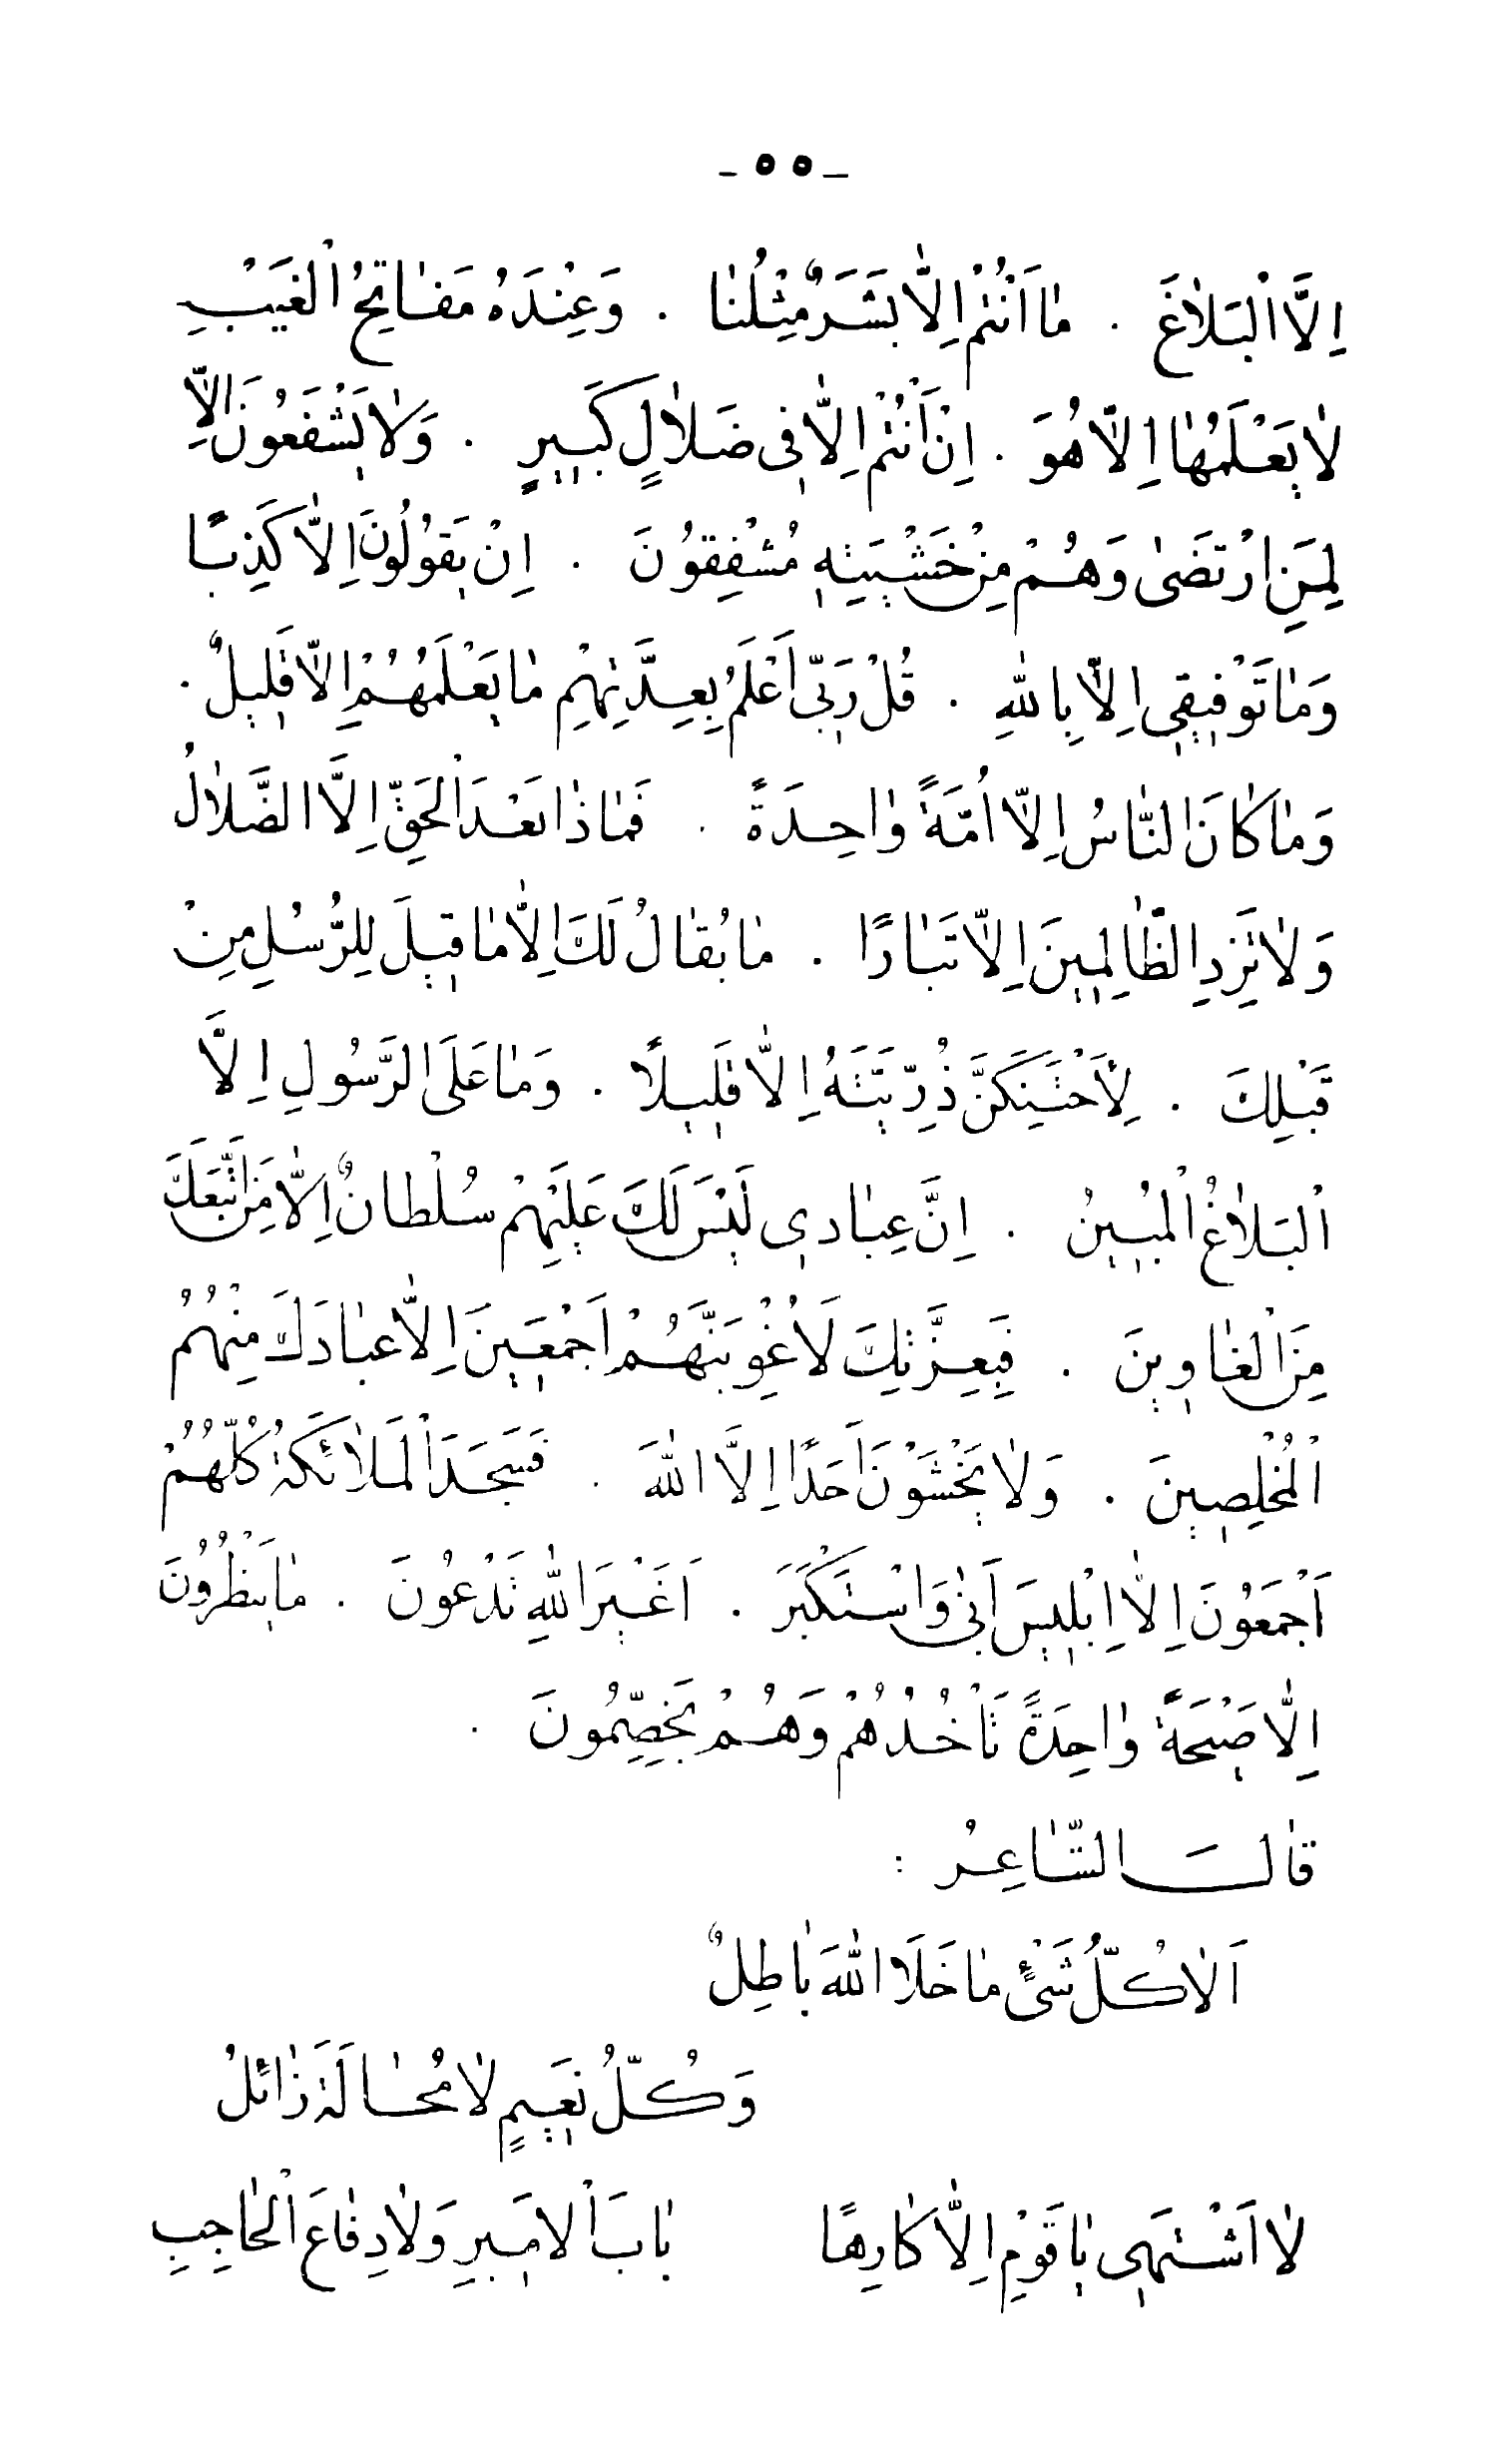 ـ ٥٥ ـ
اِلَّا الْبَلاٰغَ . مٰا اَنْتُمْ اِلاّٰ بَشَرٌ مِثْلُنٰا . وَعِنْدَهُ مَفٰاتِحُ الْغَيْبِ
لاٰ يَعْلَمُهٰا اِلاّٰ هُوَ . اِنْ اَنْتُمْ اِلاّٰ فِى ضَلاٰلٍ كَبِيرٍ . وَلاٰ يَشْفَعُونَ اِلاّٰ
لِمَنِ ارْتَضَىٰ وَهُمْ مِنْ خَشْيَتِهِ مُشْفِقُونَ . اِنْ يَقُولُونَ اِلاّٰ كَذِبًا
وَمٰا تَوْفِيقِى اِلاّٰ بِاللّٰهِ . قُلْ رَبِّى اَعْلَمُ بِعِدَّتِهِمْ مٰا يَعْلَمُهُمْ اِلاّٰ قَلِيلٌ .
وَمٰا كٰانَ النّٰاسُ اِلاّٰ اُمَّةً وٰاحِدَةً . فَمٰاذٰا بَعْدَ الْحَقِّ اِلَّا الضَّلاٰلُ
وَلاٰ تَزِدِ الظّٰالِمِينَ اِلاّٰ تَبٰارًا . مٰا يُقٰالُ لَكَ اِلاّٰ مٰا قِيلَ لِلرُّسُلِ مِنْ
قَبْلِكَ . لَاَحْتَنِكَنَّ ذُرِّيَّتَهُ اِلاّٰ قَلِيلًا . وَمٰا عَلَى الرَّسُولِ اِلَّا
الْبَلاٰغُ الْمُبِينُ . اِنَّ عِبٰادِى لَيْسَ لَكَ عَلَيْهِمْ سُلْطٰانٌ اِلاّٰ مَنِ اتَّبَعَكَ
مِنَ الْغٰاوِينَ . فَبِعِزَّتِكَ لَاُغْوِيَنَّهُمْ اَجْمَعِينَ اِلاّٰ عِبٰادَكَ مِنْهُمُ
الْمُخْلِصِينَ . وَلاٰ يَخْشَوْنَ اَحَدًا اِلَّا اللّٰهَ . فَسَجَدَ الْمَلاٰئِكَةُ كُلُّهُمْ
اَجْمَعُونَ اِلاّٰ اِبْلِيسَ اَبٰى وَاسْتَكْبَرَ . اَغَيْرَ اللّٰهِ تَدْعُونَ . مٰا يَنْظُرُونَ
اِلاّٰ صَيْحَةً وٰاحِدَةً تَاْخُذُهُمْ وَهُمْ يَخِصِّمُونَ .
قٰالَ الشّٰاعِرُ :
اَلاٰ كُلُّ شَىْءٍ مٰا خَلَا اللّٰهَ بٰاطِلٌ
وَكُلُّ نَعِيمٍ لاٰ مُحٰالَةَ زٰائِلُ
لاٰ اَشْتَهِى يٰا قَوْمِ اِلاّٰ كٰارِهًا بٰابَ الْاَمِيرِ وَلاٰ دِفٰاعَ الْحٰاجِبِ